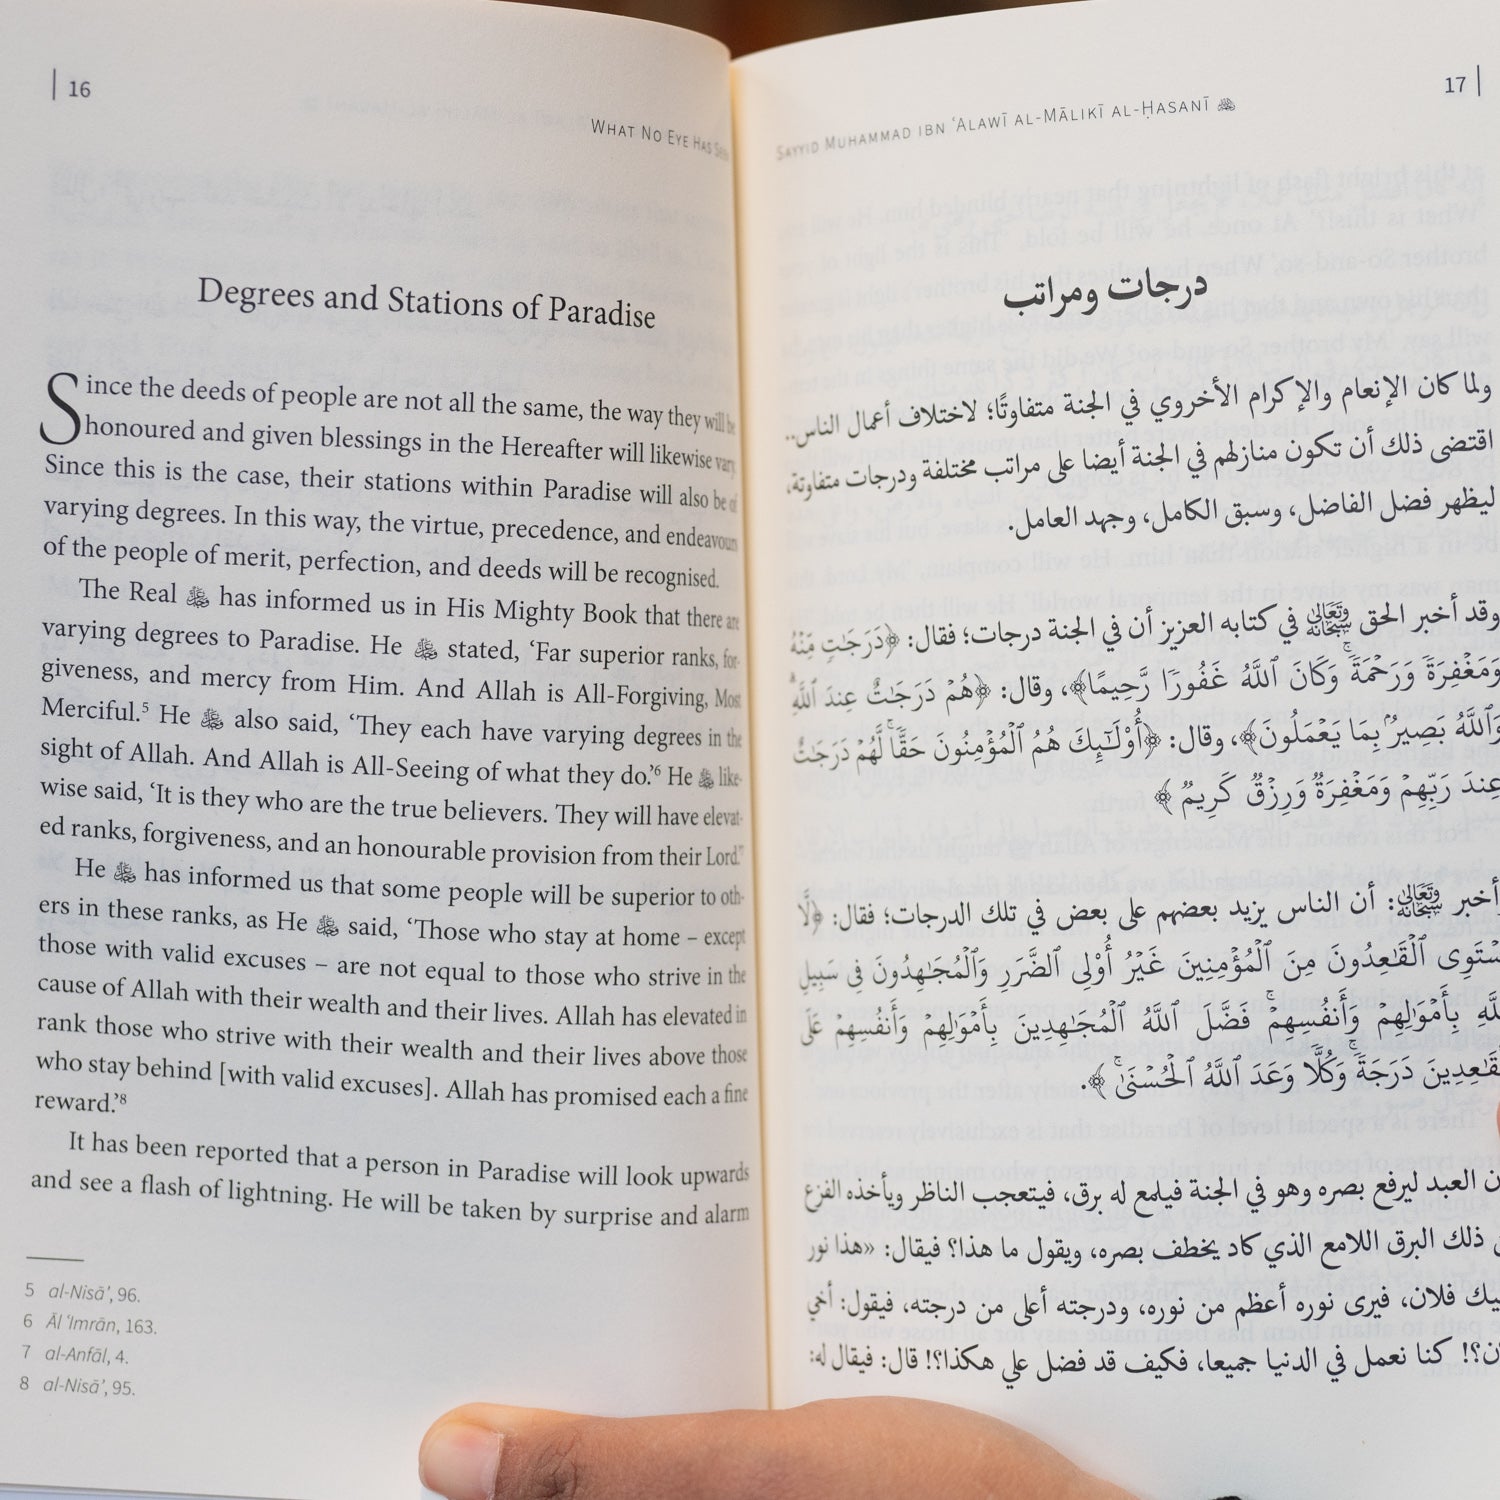 16
What No Eye Has Seen
Degrees and Stations of Paradise
Since the deeds of people are not all the same, the way they will be
honoured and given blessings in the Hereafter will likewise vary.
Since this is the case, their stations within Paradise will also be of
varying degrees. In this way, the virtue, precedence, and endeavours
of the people of merit, perfection, and deeds will be recognised.
The Real ﷻ has informed us in His Mighty Book that there are
varying degrees to Paradise. He ﷻ stated, ‘Far superior ranks, for-
giveness, and mercy from Him. And Allah is All-Forgiving, Most
Merciful.⁵ He ﷻ also said, ‘They each have varying degrees in the
sight of Allah. And Allah is All-Seeing of what they do.’⁶ He ﷻ like-
wise said, ‘It is they who are the true believers. They will have elevat-
ed ranks, forgiveness, and an honourable provision from their Lord.’⁷
He ﷻ has informed us that some people will be superior to oth-
ers in these ranks, as He ﷻ said, ‘Those who stay at home – except
those with valid excuses – are not equal to those who strive in the
cause of Allah with their wealth and their lives. Allah has elevated in
rank those who strive with their wealth and their lives above those
who stay behind [with valid excuses]. Allah has promised each a fine
reward.’⁸
It has been reported that a person in Paradise will look upwards
and see a flash of lightning. He will be taken by surprise and alarm
5 al-Nisā’, 96.
6 Āl ‘Imrān, 163.
7 al-Anfāl, 4.
8 al-Nisā’, 95.
17
Sayyid Muhammad ibn ‘Alawī al-Mālikī al-Ḥasanī
درجات ومراتب
ولما كان الإنعام والإكرام الأخروي في الجنة متفاوتًا؛ لاختلاف أعمال الناس..
اقتضى ذلك أن تكون منازلهم في الجنة أيضا على مراتب مختلفة ودرجات متفاوتة،
ليظهر فضل الفاضل، وسبق الكامل، وجهد العامل.
وقد أخبر الحق سُبْحَانَهُ وَتَعَالَى في كتابه العزيز أن في الجنة درجات؛ فقال: ﴿دَرَجَٰتٖ مِّنۡهُ
وَمَغۡفِرَةٗ وَرَحۡمَةٗۚ وَكَانَ ٱللَّهُ غَفُورٗا رَّحِيمًا﴾، وقال: ﴿هُمۡ دَرَجَٰتٌ عِندَ ٱللَّهِۗ
وَٱللَّهُ بَصِيرُۢ بِمَا يَعۡمَلُونَ﴾، وقال: ﴿أُوْلَٰٓئِكَ هُمُ ٱلۡمُؤۡمِنُونَ حَقّٗاۚ لَّهُمۡ دَرَجَٰتٌ
عِندَ رَبِّهِمۡ وَمَغۡفِرَةٞ وَرِزۡقٞ كَرِيمٞ﴾
أخبر سُبْحَانَهُ وَتَعَالَى: أن الناس يزيد بعضهم على بعض في تلك الدرجات؛ فقال: ﴿لَّا
سۡتَوِى ٱلۡقَٰعِدُونَ مِنَ ٱلۡمُؤۡمِنِينَ غَيۡرُ أُوْلِى ٱلضَّرَرِ وَٱلۡمُجَٰهِدُونَ فِى سَبِيلِ
للَّهِ بِأَمۡوَٰلِهِمۡ وَأَنفُسِهِمۡۚ فَضَّلَ ٱللَّهُ ٱلۡمُجَٰهِدِينَ بِأَمۡوَٰلِهِمۡ وَأَنفُسِهِمۡ عَلَى
قَٰعِدِينَ دَرَجَةٗۚ وَكُلّٗا وَعَدَ ٱللَّهُ ٱلۡحُسۡنَىٰۚ﴾.
ن العبد ليرفع بصره وهو في الجنة فيلمع له برق، فيتعجب الناظر ويأخذه الفزع
ذلك البرق اللامع الذي كاد يخطف بصره، ويقول ما هذا؟ فيقال: «هذا نور
يك فلان، فيرى نوره أعظم من نوره، ودرجته أعلى من درجته، فيقول: أخي
ن؟! كنا نعمل في الدنيا جميعا، فكيف قد فضل علي هكذا؟! قال: فيقال له: